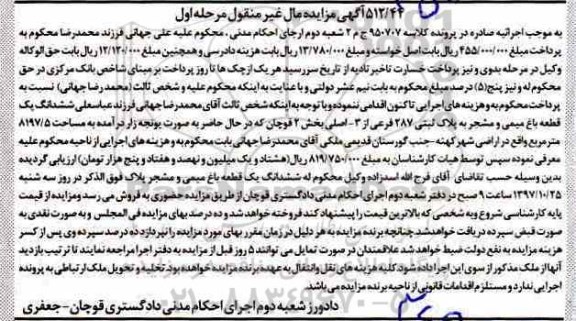 ۵۱۲/۴۴ آگهی مزایده مال غیر منقول مرحله اول
به موجب اجرائیه صادره در پرونده کلاسه ۹۵۰۷۰۷ ج م ۲ شعبه دوم اجرای احکام مدنی ، محکوم علیه علی جهانی فرزند محمدرضا محکوم به
پرداخت مبلغ ۴۵۵/۰۰۰/۰۰۰ ریال بابت اصل خواسته و مبلغ ۱۳/۷۸۰/۰۰۰ ریال بابت هزینه دادرسی و همچنین مبلغ ۱۲/۱۲۰/۰۰۰ ریال بابت حق الوکاله
وکیل در مرحله بدوی و نیز پرداخت خسارت تاخیر تادیه از تاریخ سررسید هر یک از چک ها تا روز پرداخت بر مبنای شاخص بانک مرکزی در حق
محکوم له و نیز پنج(۵) درصد مبلغ محکوم به بابت نیم عشر دولتی و با عنایت به اینکه محکوم علیه و شخص ثالث (محمد رضا جهانی) نسبت به
پرداخت محکوم به و هزینه های اجرایی تا کنون اقدامی ننموده و با توجه به اینکه شخص ثالث آقای محمدرضا جهانی فرزند عباسعلی ششدانگ یک
قطعه باغ میمی و مشجر به پلاک ثبتی ۲۸۷ فرعی از ۳- اصلی بخش ۲ قوچان که در حال حاضر به صورت یونجه زار در آمده به مساحت ۸۱۹۷/۵
متر مربع واقع در اراضی شهر کهنه-جنب گورستان قدیمی ملکی آقای محمدرضا جهانی بابت محکوم به و هزینه های اجرایی از ناحیه محکوم علیه
معرفی نموده سپس توسط هیات کارشناسان به مبلغ ۸۱۹/۷۵۰/۰۰۰ ریال(هشتاد و یک میلیون و نهصد و هفتاد و پنج هزار تومان) ارزیابی گردیده
بدین وسیله حسب تقاضای آقای فرج الله اسدزاده وکیل محکوم له ششدانگ یک قطعه باغ میمی و مشجر پلاک فوق الذکر در روز سه شنبه
۱۳۹۷/۱۰/۲۵ ساعت ۹ صبح در دفتر شعبه دوم اجرای احکام مدنی دادگستری قوچان از طریق مزایده حضوری به فروش می رسد و مزایده از قیمت
پایه کارشناسی شروع و به شخصی که بالاترین قیمت را پیشنهاد کند فروخته خواهد شد و ده درصد بهای مزایده فی المجلس و به صورت نقدی به
صورت قبض سپرده دریافت خواهد شد چنانچه برنده مزایده به هر دلیل در زمان مقرر بهای مورد مزایده را نپردازد ده درصد سپرده وی پس از کسر
هزینه مزایده به نفع دولت ضبط خواهد شد علاقمندان در صورت تمایل می توانند ۵ روز قبل از مزایده به دفتر اجرا مراجعه نمایند تا ترتیب بازدید
آنها از ملک مذکور از سوی این اجرا داده شود. کلیه هزینه های نقل و انتقال به عهده برنده مزایده خواهد بود. تخلیه و تحویل ملک ارتباطی به پرونده
اجرایی ندارد و مستلزم اقدامات قانونی از ناحیه برنده مزایده می باشد
دادورز شعبه دوم اجرای احکام مدنی دادگستری قوچان - جعفری